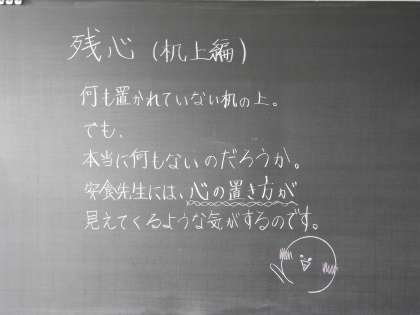 残心(机上編)
何も置かれていない机の上。
でも、
本当に何もないのだろうか。
安食先生には、心の置き方が
見えてくるような気がするのです。